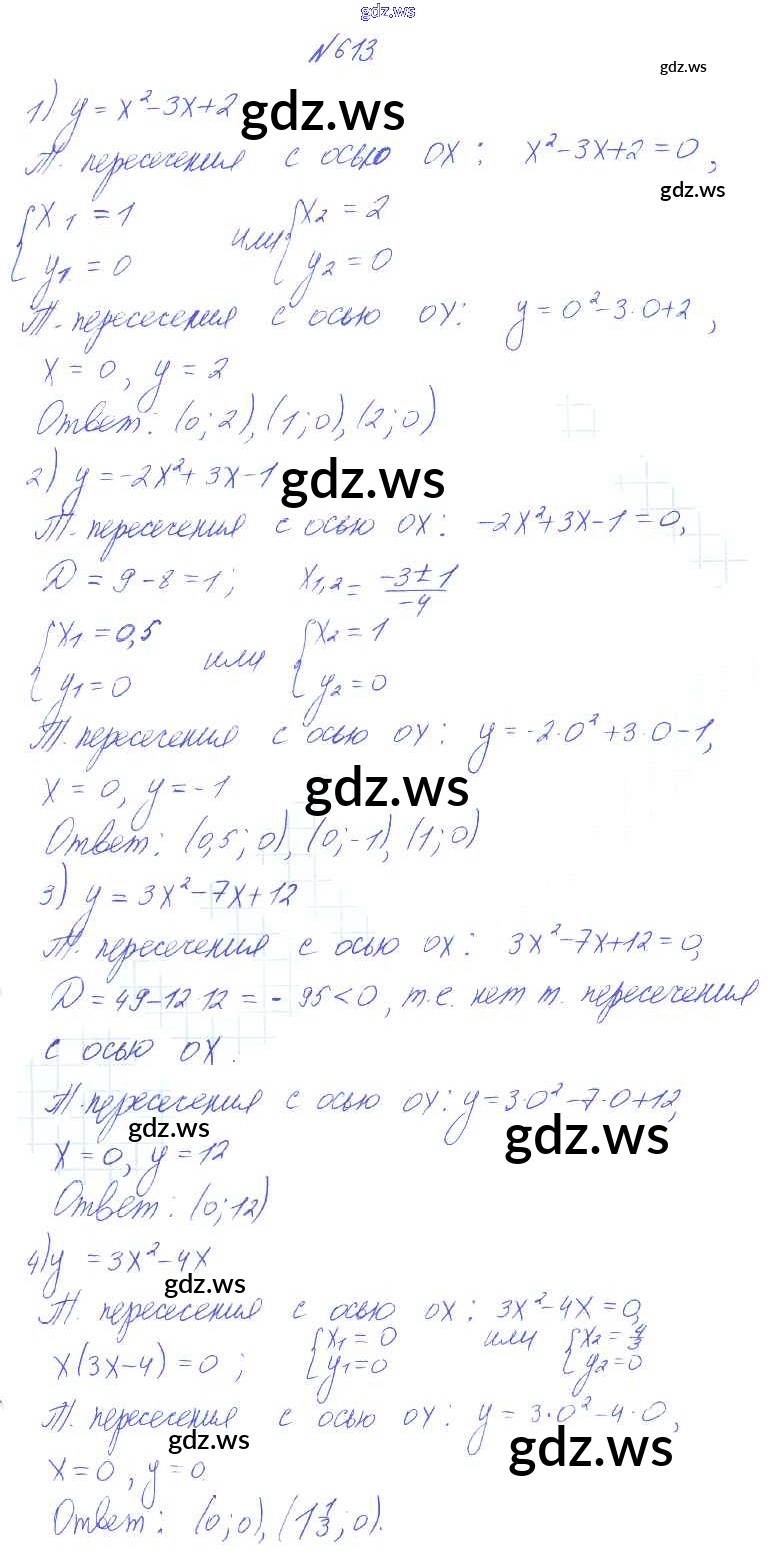 gdz.ws
№613.
gdz.ws
1) y = x² - 3x + 2
gdz.ws
Т. пересечения с осью OX: x² - 3x + 2 = 0,
gdz.ws
{x₁ = 1 или {x₂ = 2
y₁ = 0 y₂ = 0
Т. пересечения с осью OY: y = 0² - 3·0 + 2,
x = 0, y = 2
Ответ: (0; 2), (1; 0), (2; 0)
2) y = -2x² + 3x - 1
gdz.ws
Т. пересечения с осью OX: -2x² + 3x - 1 = 0,
D = 9 - 8 = 1; x₁,₂ = (-3 ± 1)/-4
{x₁ = 0,5 или {x₂ = 1
y₁ = 0 y₂ = 0
Т. пересечения с осью OY: y = -2·0² + 3·0 - 1,
x = 0, y = -1
gdz.ws
Ответ: (0,5; 0), (0; -1), (1; 0)
3) y = 3x² - 7x + 12
Т. пересечения с осью OX: 3x² - 7x + 12 = 0,
D = 49 - 12·12 = -95 < 0, т.е. нет т. пересечения
с осью OX.
Т. пересечения с осью OY: y = 3·0² - 7·0 + 12,
gdz.ws
gdz.ws
x = 0, y = 12
Ответ: (0; 12)
4) y = 3x² - 4x
gdz.ws
Т. пересечения с осью OX: 3x² - 4x = 0,
x(3x - 4) = 0; {x₁ = 0 или {x₂ = 4/3
y₁ = 0 y₂ = 0
Т. пересечения с осью OY: y = 3·0² - 4·0,
gdz.ws
gdz.ws
x = 0, y = 0
Ответ: (0; 0), (1 1/3; 0).